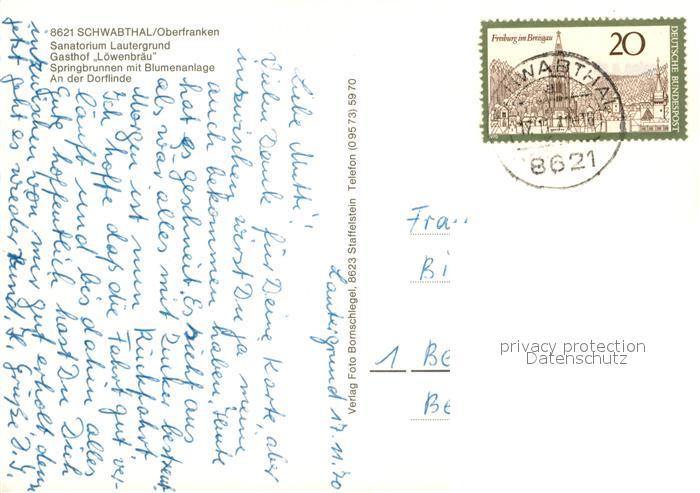 8621 SCHWABTHAL/Oberfranken
Sanatorium Lautergrund
Gasthof „Löwenbräu"
Springbrunnen mit Blumenanlage
An der Dorflinde
Freiburg im Breisgau
20
DEUTSCHE BUNDESPOST
SCHWABTHAL
8621
Lautergrund 17.11.70
Liebe Mutti!
Vielen Dank für Deine Karte, aber
inzwischen wirst Du ja meine
auch bekommen haben. Heute
hat es geschneit. Es sieht aus
als wär alles mit Zucker bestreut.
Morgen ist nun Rückfahrt
Ich hoffe daß die Fahrt gut ver-
läuft und bis dahin alles
Gute hoffentlich hast Du Dich
inzwischen von mir gut erholt, denn
jetzt geht es wieder rund. H. Grüße
Verlag Foto Bornschlegel, 8623 Staffelstein Telefon (0 95 73) 59 70
Fra
Bi
1 Be
Be
privacy protection
Datenschutz